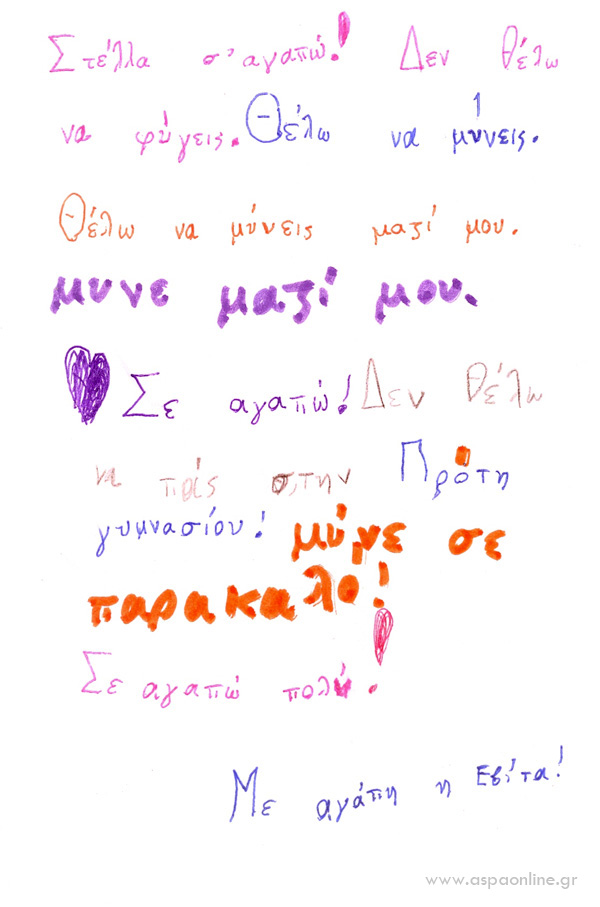 Στέλλα σ' αγαπώ! Δεν θέλω
να φύγεις. Θέλω να μύνεις.
Θέλω να μύνεις μαζί μου.
μυνε μαζί μου.
Σε αγαπώ! Δεν θέλω
να πάς στην Πρότη
γυμνασίου! μύνε σε
παρακαλο!
Σε αγαπώ πολύ.
Με αγάπη η Εβίτα!
www.aspaonline.gr